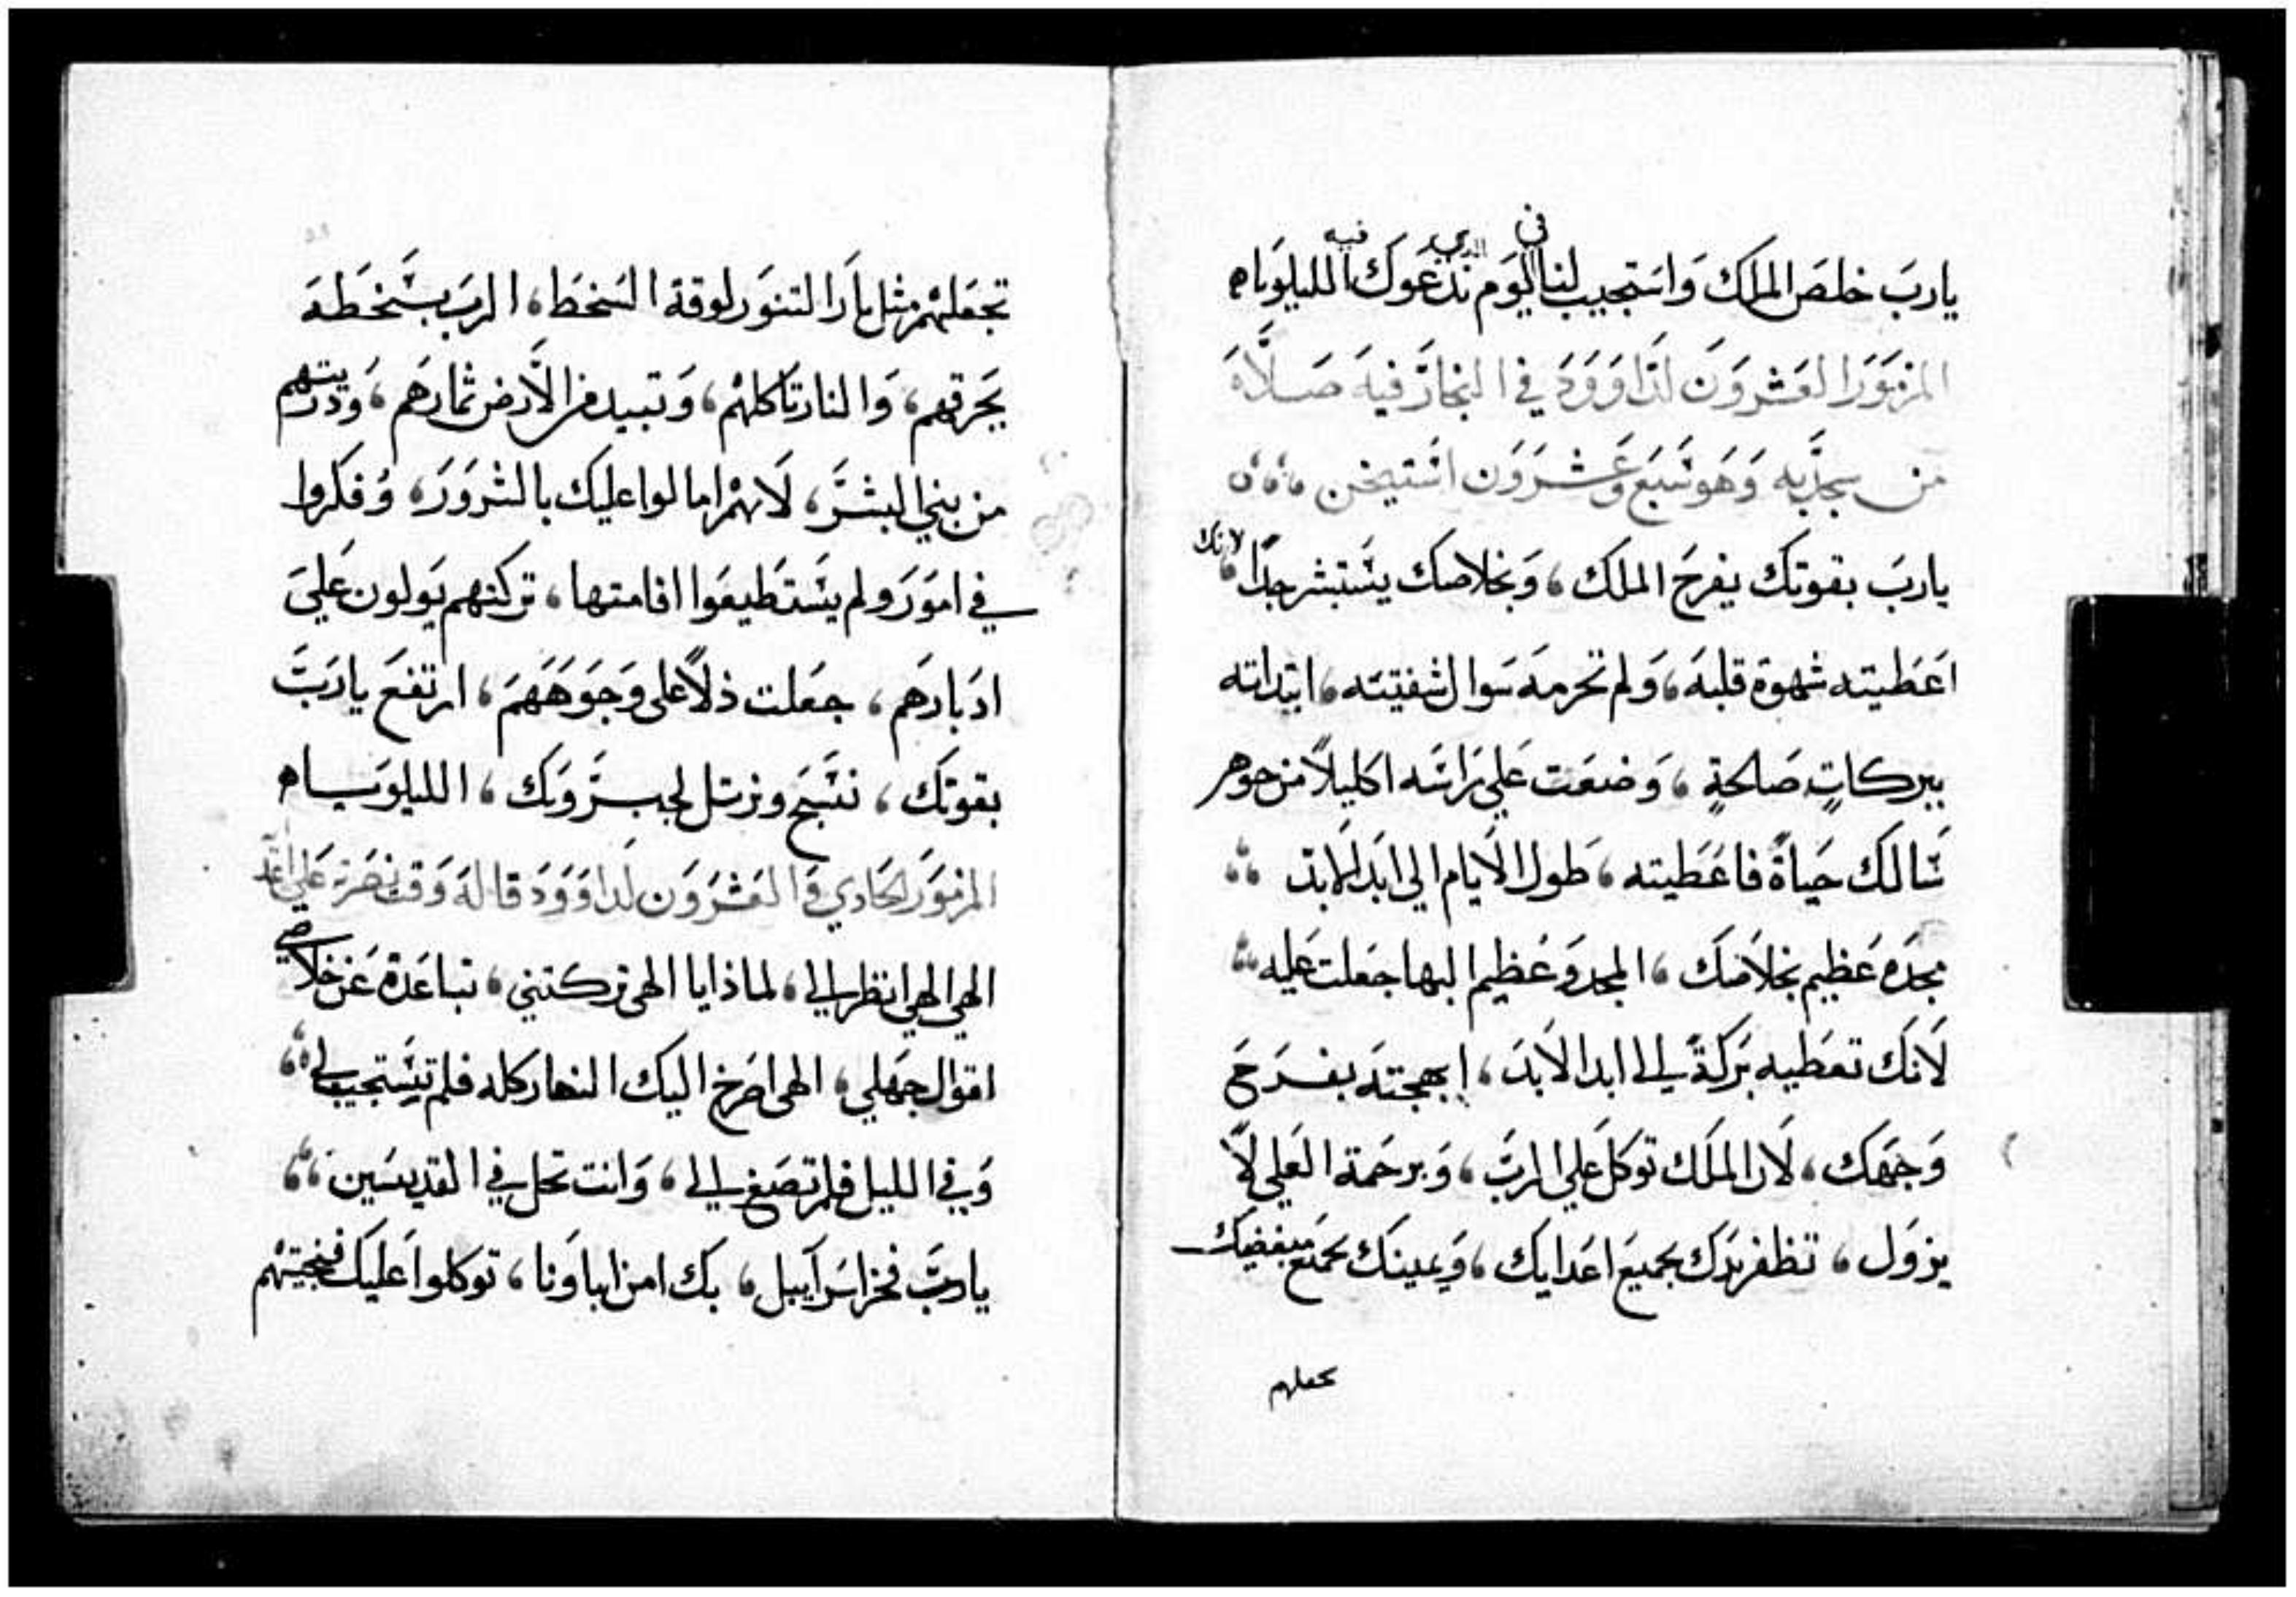 يارب خلص الملك واستجيب لنا في اليوم الذي ندعوك فيه الليلوياه
المزمور العشرون لداوود في النجاز فيه صلاة
من سجد به وهو سبع وعشرون استيخن
يارب بقوتك يفرح الملك، وبخلاصك يستبشر جدًا، لانك
اعطيته شهوة قلبه، ولم تحرمه سوال شفتيه، ابتداته
ببركاتٍ صالحةٍ، وضعت علي راسه اكليلاً من جوهر
سالك حياةً فاعطيته، طول الايام الي ابد الابد
مجده عظيم بخلاصك، المجد وعظيم البها جعلت عليه
لانك تعطيه بركةً الي ابد الابد، ابهجته بفرح
وجهك، لان الملك توكل علي الرب، وبرحمة العلي لا
يزول، تظفر يدك بجميع اعدايك، ويمينك بجميع مبغضيك
تجعلهم
تجعلهم مثل نار التنور لوقة السخط، الرب بسخطه
يحرقهم، والنار تاكلهم، وتبيد من الارض ثمارهم، وذريتهم
من بني البشر، لانهم امالوا عليك بالشرور، وفكروا
في امور ولم يستطيعوا اقامتها، تركتهم يولون علي
ادبارهم، جعلت ذلاً علي وجوههم، ارتفع يارب
بقوتك، نسبح ونرتل لجبروتك، الليلوياه
المزمور الحادي والعشرون لداوود قاله وقت نصرته علي اعد
الهي الهي انظر الي، لماذا يا الهي تركتني، تباعدة عن خلاصي
اقوال جهلي، الهي اصرخ اليك النهار كله فلم تستجيب لي
وفي الليل فلم تصغ الي، وانت تحل في القديسين
يارب فخر اسراييل، بك امن اباونا، توكلوا عليك فنجيتهم